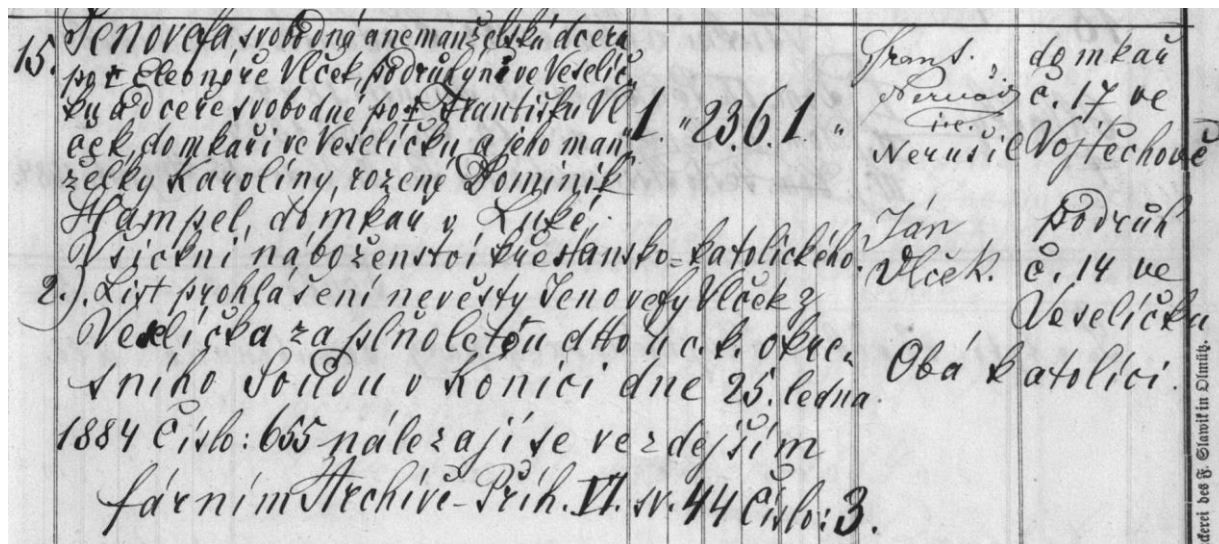 15. Jenovefa, svobodná a nemanželská dcera
po † Eleonóře Vlček, podruhyni ve Veselíč-
ku a dceře svobodné po † Františku Vl-
ček, domkaři ve Veselíčku a jeho man-
želky Karolíny, rozené Dominik
Hampel, domkař v Luké.
Všickni náboženství křestansko-katolického.
2.). List prohlášení nevěsty Jenovefy Vlček z
Veselíčka za plnoletou dtto u c. k. okre-
sního Soudu v Konici dne 25. ledna
1884 Číslo: 655 nálezají se ve zdejším
fárním Archivě - Příh. VI. sv. 44 Číslo: 3.
1. " 23 6. 1. "
Frant.
ire.
Nerušil
domkař
č. 17 ve
Vojtěchově
Ján
Vlček.
podruh
č. 14 ve
Veselíčku
Obá katolíci.
ckerei des F. Slawik in Olmütz.